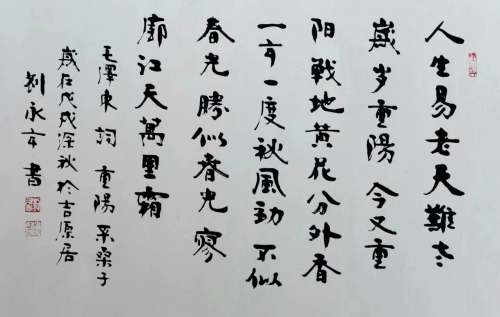 人生易老天難老
歲岁重陽今又重
阳戰地黄花分外香
一年一度秋風劲不似
春光勝似春光寥
廓江天萬里霜
毛澤東詞重陽采桑子
歲在戊戌深秋於吉原居
刘永年書